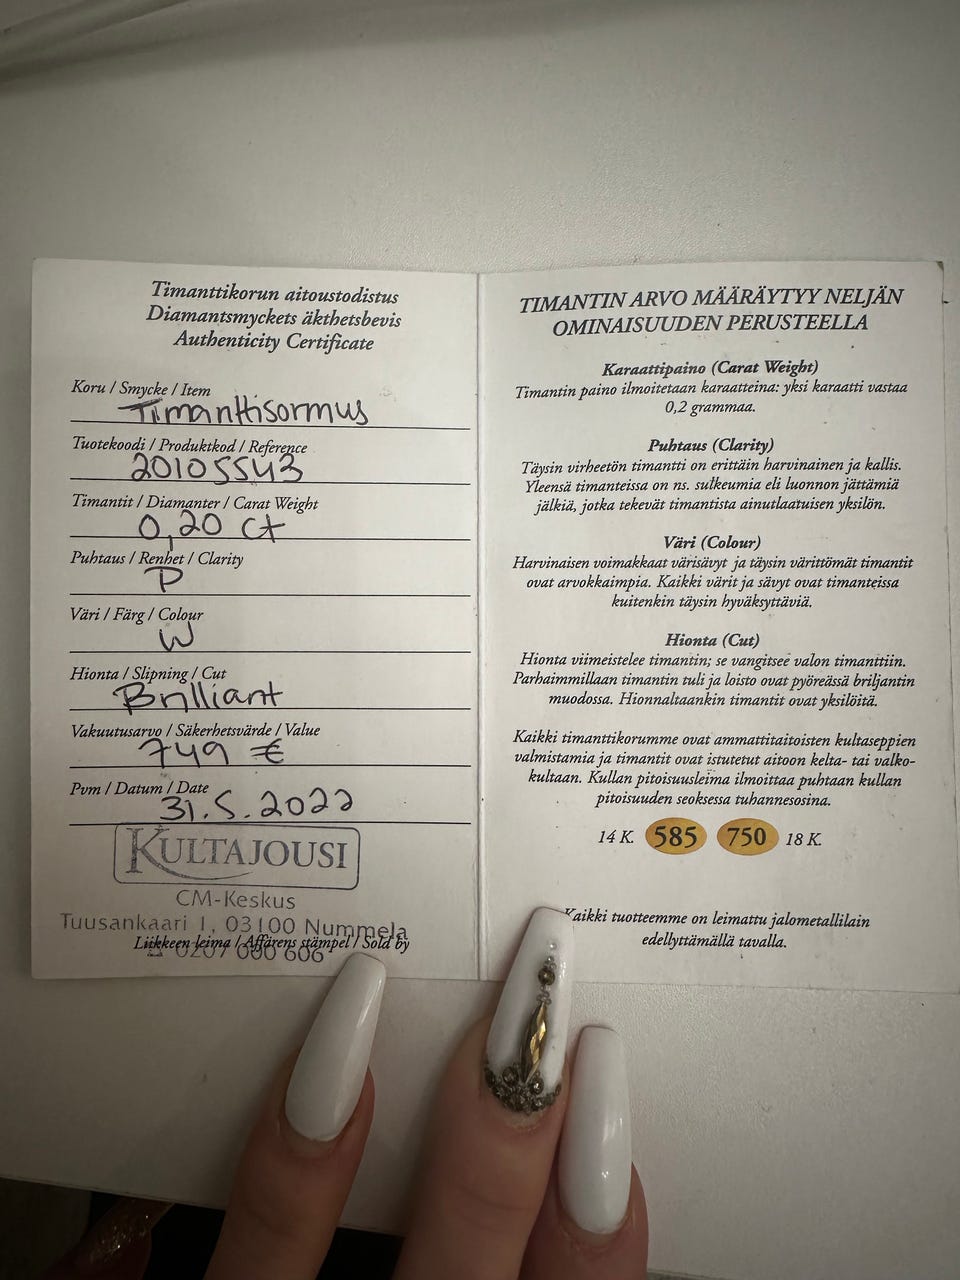 Timanttikorun aitoustodistus
Diamantsmyckets äkthetsbevis
Authenticity Certificate
Koru / Smycke / Item
Timanttisormus
Tuotekoodi / Produktkod / Reference
20105543
Timantit / Diamanter / Carat Weight
0,20 ct
Puhtaus / Renhet / Clarity
P
Väri / Färg / Colour
W
Hionta / Slipning / Cut
Brilliant
Vakuutusarvo / Säkerhetsvärde / Value
749 €
Pvm / Datum / Date
31.5.2022
KULTAJOUSI
CM-Keskus
Tuusankaari 1, 03100 Nummela
Liikkeen leima / Affärens stämpel / Sold by
☎ 0207 000 606
TIMANTIN ARVO MÄÄRÄYTYY NELJÄN
OMINAISUUDEN PERUSTEELLA
Karaattipaino (Carat Weight)
Timantin paino ilmoitetaan karaatteina: yksi karaatti vastaa
0,2 grammaa.
Puhtaus (Clarity)
Täysin virheetön timantti on erittäin harvinainen ja kallis.
Yleensä timanteissa on ns. sulkeumia eli luonnon jättämiä
jälkiä, jotka tekevät timantista ainutlaatuisen yksilön.
Väri (Colour)
Harvinaisen voimakkaat värisävyt ja täysin värittömät timantit
ovat arvokkaimpia. Kaikki värit ja sävyt ovat timanteissa
kuitenkin täysin hyväksyttäviä.
Hionta (Cut)
Hionta viimeistelee timantin; se vangitsee valon timanttiin.
Parhaimmillaan timantin tuli ja loisto ovat pyöreässä briljantin
muodossa. Hionnaltaankin timantit ovat yksilöitä.
Kaikki timanttikorumme ovat ammattitaitoisten kultaseppien
valmistamia ja timantit ovat istutetut aitoon kelta- tai valko-
kultaan. Kullan pitoisuusleima ilmoittaa puhtaan kullan
pitoisuuden seoksessa tuhannesosina.
14 K. 585 750 18 K.
Kaikki tuotteemme on leimattu jalometallilain
edellyttämällä tavalla.